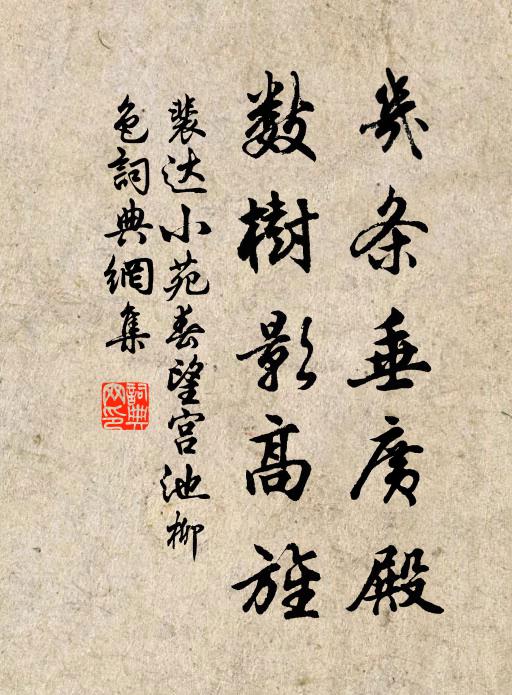 几条垂廣殿
數樹影高旌
裴达小苑春望宫池柳
色詞典網集
詞典網印